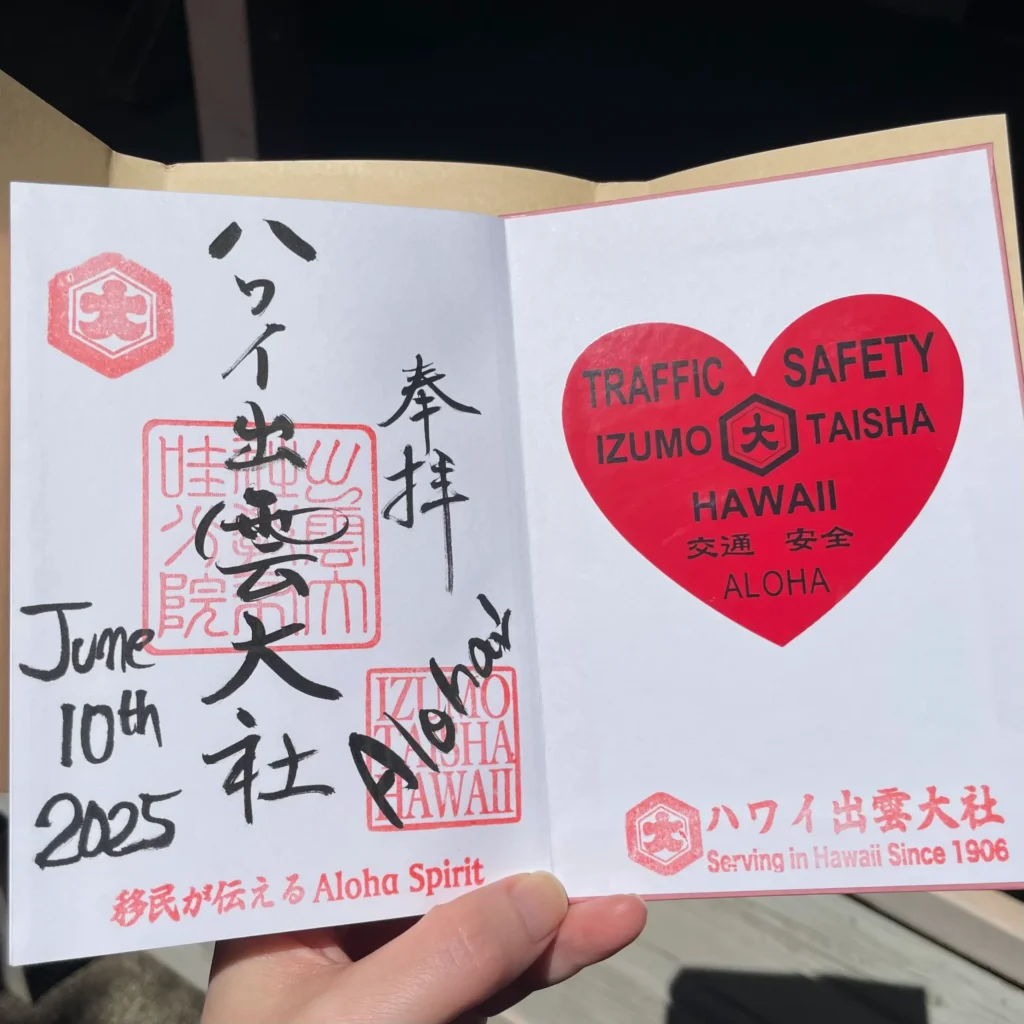 ハワイ出雲大社
奉拝
Aloha!
June
10th
2025
IZUMO
TAISHA
HAWAII
移民が伝える Aloha Spirit
TRAFFIC SAFETY
IZUMO 大 TAISHA
HAWAII
交通 安全
ALOHA
ハワイ出雲大社
Serving in Hawaii Since 1906